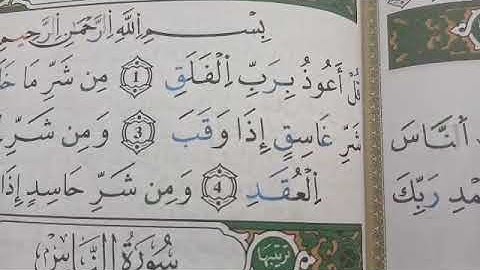 بِسْمِ اللَّهِ الرَّحْمَٰنِ الرَّحِيمِ
قُلْ أَعُوذُ بِرَبِّ الْفَلَقِ 1 مِن شَرِّ مَا خَلَ
شَرِّ غَاسِقٍ إِذَا وَقَبَ 3 وَمِن شَرِّ
الْعُقَدِ 4 وَمِن شَرِّ حَاسِدٍ إِذَا
سُورَةُ النَّاسِ
تَرْتِيبُهَا
النَّاسَ
مْدِ رَبِّكَ